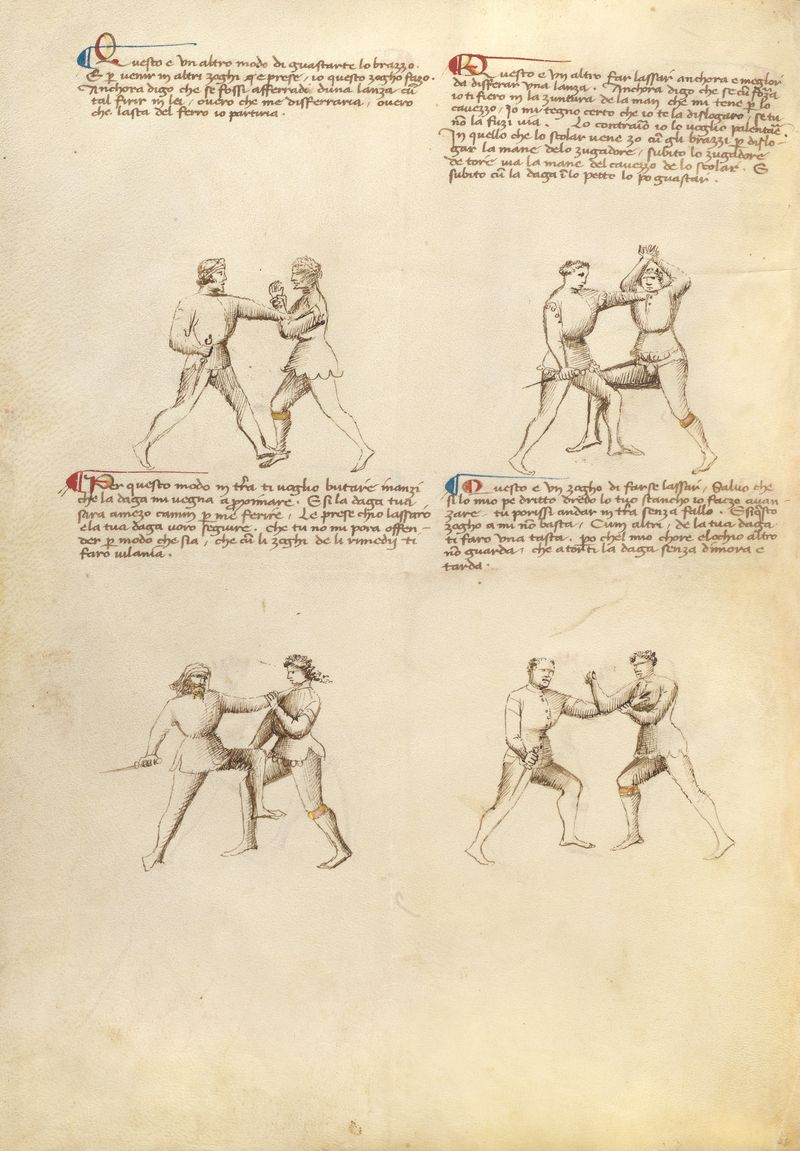 Questo e un altro modo di guastarte lo brazzo.
E p venir in altri zoghi q e prese, io questo zogho fazo.
Anchora digo che se fossi afferrado duna lanza cu
tal firir in lei, overo che me disferraria, overo
che lasta del ferro io partiria.
Questo e un altro far lassar anchora e meglor
da disferar una lanza. Anchora digo che se cu forza
io ti fiero in la zuntura de la man che mi tene p lo
cavezzo, Io mi tegno certo che io te la dislogaro, se tu
no la fuzi via. Lo contrario io lo voglio palentare
In quello che lo scolar vene zo cu gli brazzi p dislo-
gar la mane delo zugadore, subito lo zugadore
de tore via la mane del cavezzo de lo scolar. E
subito cu la daga i lo petto lo po guastar.
Per questo modo in tra ti voglio butare inanzi
che la daga mi vegna aproximare. E si la daga tua
sara amezo camin p me ferire, Le prese chio lassaro
e la tua daga voro seguire. che tu no mi pora offen-
der p modo che sia, che cu li zoghi de li rimedii ti
faro vilania.
Questo e un zogho di farse lassar, Salvo che
si lo mio pe dritto dredo lo tuo stancho io fazo avan-
zare. tu porissi andar in tra senza fallo. E si questo
zogho a mi no basta, Cum altri, de la tua daga
ti faro una tasta. po chel mio chore e lochio altro
no guarda, che a torti la daga senza dimora e
tarda.